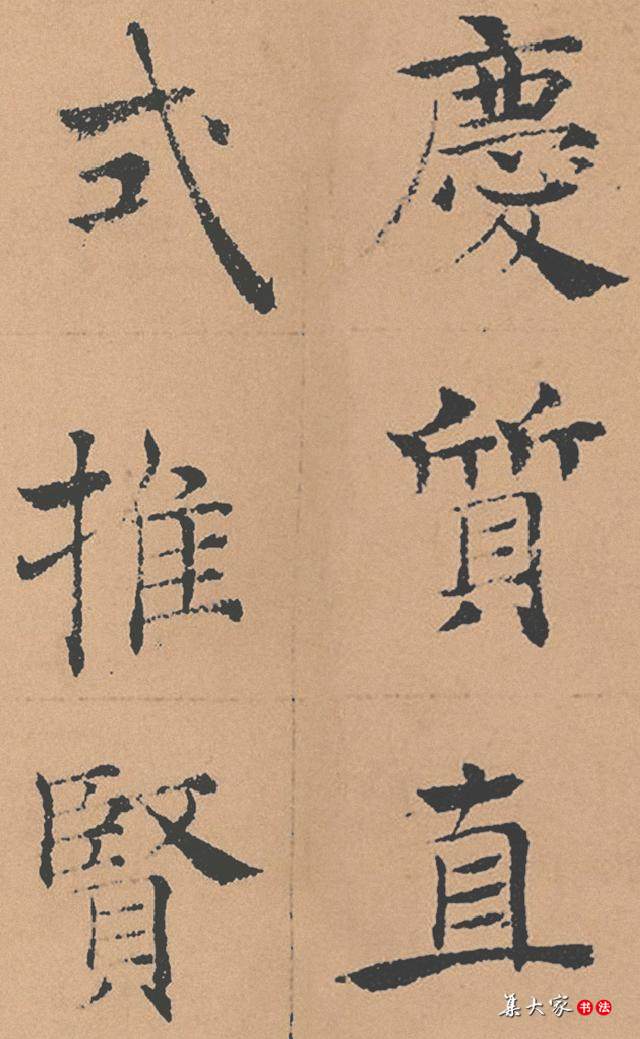 慶質直
式推賢
集大家书法